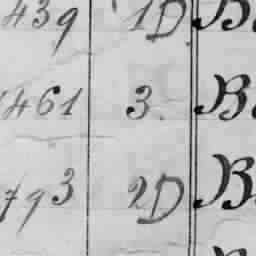 439 1D. B
1461 3. B
793 2D B